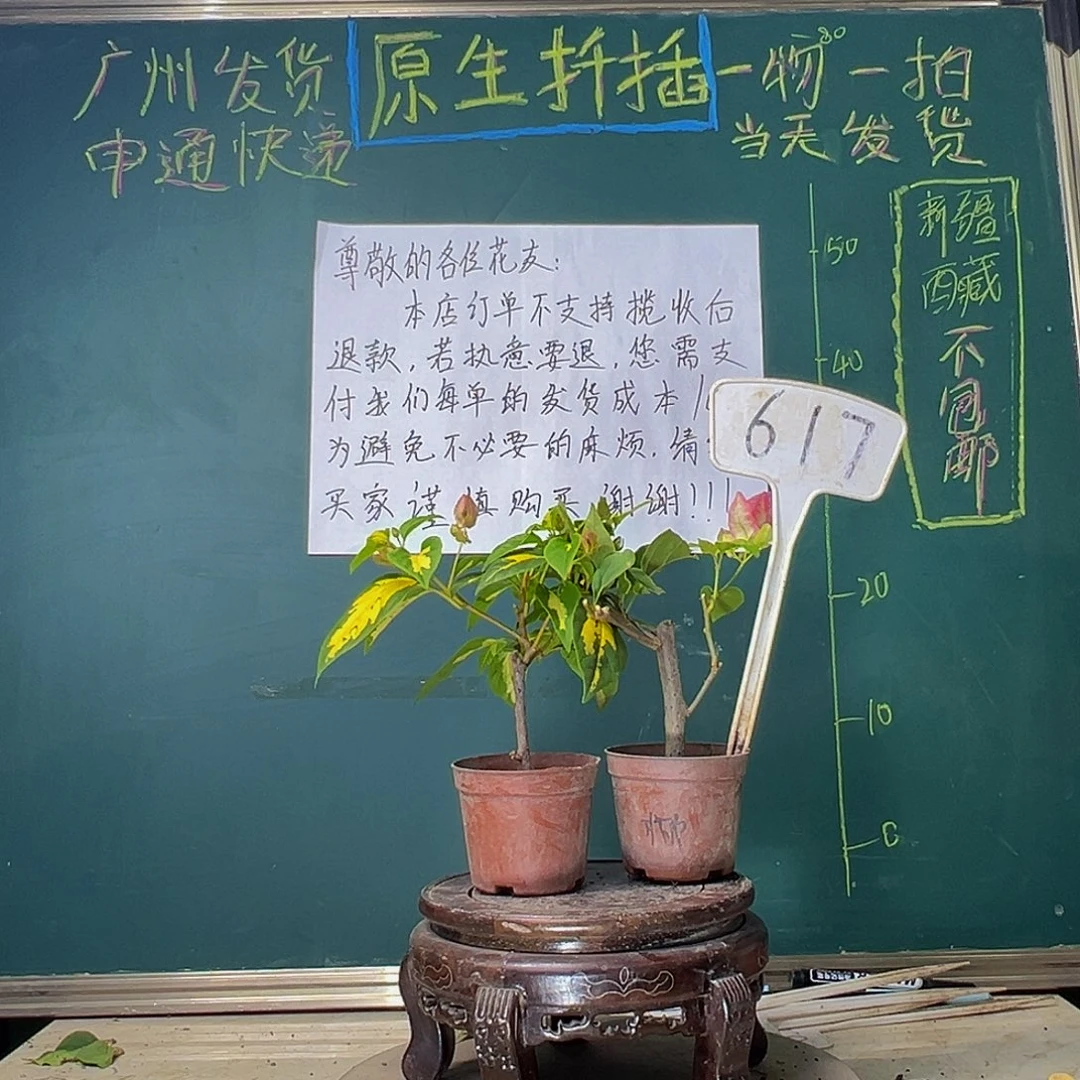 广州发货
申通快递
原生扦插
一物一拍
当天发货
新疆
西藏
不
包
邮
尊敬的各位花友:
本店订单不支持揽收后
退款,若执意要退,您需支
付我们每单的发货成本1
为避免不必要的麻烦.请
买家谨慎购买谢谢!!!
617
50
40
20
10
0